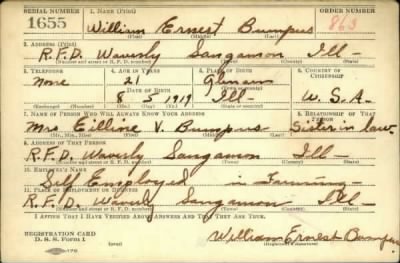 SERIAL NUMBER 1. NAME (Print) ORDER NUMBER
1655 William Ernest Bumpus 863
(First) (Middle) (Last)
2. ADDRESS (Print)
R.F.D. Waverly Sangamon Ill -
(Number and street or R. F. D. number) (Town) (County) (State)
3. TELEPHONE 4. AGE IN YEARS 5. PLACE OF BIRTH 6. COUNTRY OF CITIZENSHIP
None 21
DATE OF BIRTH
8 5 1919 Ill - U. S. A.
(Exchange) (Number) (Mo.) (Day) (Yr.) (State or country)
7. NAME OF PERSON WHO WILL ALWAYS KNOW YOUR ADDRESS 8. RELATIONSHIP OF THAT PERSON
V. Bumpus Sister in law
(Mr., Mrs., Miss) (First) (Middle) (Last)
9. ADDRESS OF THAT PERSON
R.F.D. Waverly Sangamon Ill -
(Number and street or R. F. D. number) (Town) (County) (State)
10. EMPLOYER'S NAME
Self Employed in Farming
11. PLACE OF EMPLOYMENT OR BUSINESS
R.F.D. Waverly Sangamon Ill -
(Number and street or R. F. D. number) (Town) (County) (State)
I AFFIRM THAT I HAVE VERIFIED ABOVE ANSWERS AND THAT THEY ARE TRUE.
REGISTRATION CARD
D. S. S. Form 1 William Ernest Bumpus
(Registrant's signature)